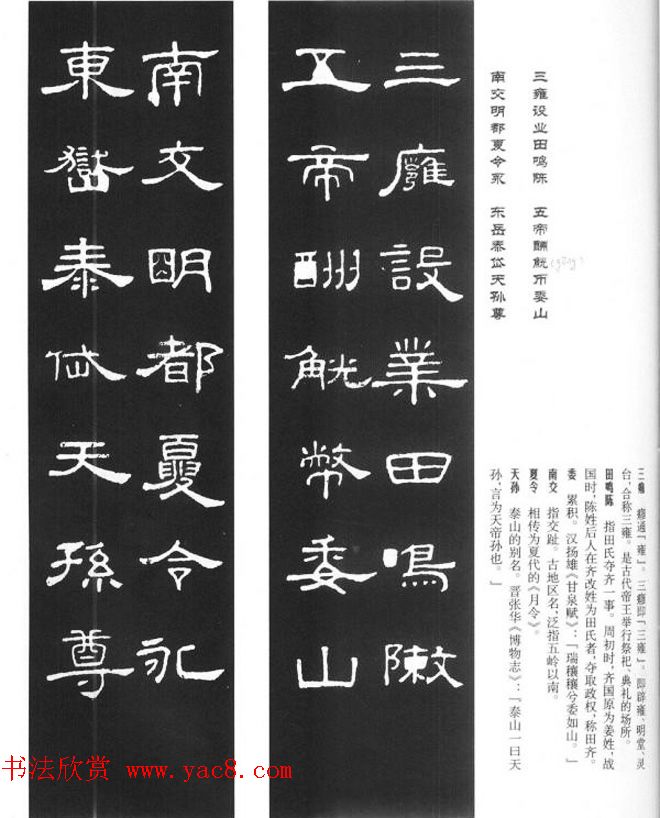 三雍设业田鸣陈 五帝酬觥币委山
南交明都夏令永 东岳泰岱天孙尊
三廱 廱通「雍」。三廱即「三雍」。即辟雍、明堂、灵
台,合称三雍。是古代帝王举行祭祀、典礼的场所。
田鸣陈 指田氏夺齐一事。周初时,齐国原为姜姓,战
国时,陈姓后人在齐改姓为田氏者,夺取政权,称田齐。
委 累积。汉扬雄《甘泉赋》:「瑞穰穰兮委如山。」
南交 指交趾。古地区名,泛指五岭以南。
夏令 相传为夏代的《月令》。
天孙 泰山的别名。晋张华《博物志》:「泰山一曰天
孙,言为天帝孙也。」
三廱設業田鳴敶
五帝酬觥幣委山
南交明都夏令永
東嶽泰岱天孫尊
书法欣赏 www.yac8.com